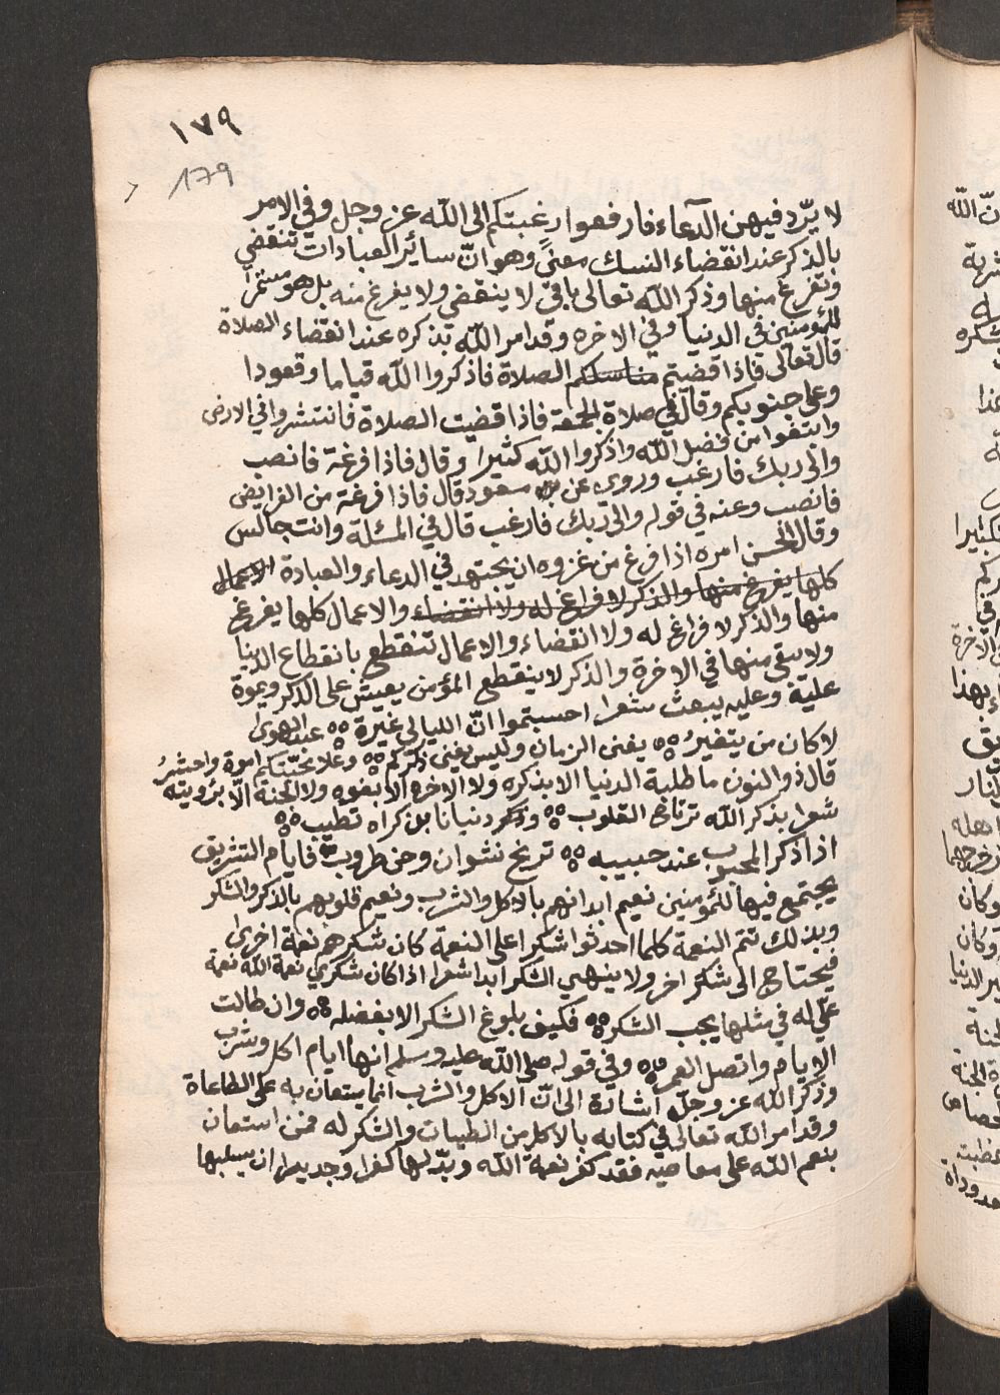 ١٧٩
179
لا يردّ فيهن الدعاء فارفعوا رغبتكم الى الله عز وجل وفي الامر
بالذكر عند انقضاء النسك معنىً وهو انّ سائر العبادات تنقضي
وتفرغ منها وذكر الله تعالى باقٍ لا ينقضي ولا يفرغ منه بل هو مستمرّ
للمؤمنين في الدنيا وفي الاخره وقد امر الله بذكره عند انقضاء الصلاة
قال تعالى فاذا قضيتم مناسككم الصلاة فاذكروا الله قياما وقعودا
وعلى جنوبكم وقال في صلاة الجمعة فاذا قضيت الصلاة فانتشروا في الارض
وابتغوا من فضل الله واذكروا الله كثيرا وقال فاذا فرغة فانصب
والى ربك فارغب وروى عن مسعود قال فاذا فرغة من الفرايض
فانصب وعنه في قوله والى ربك فارغب قال في المسئلة وانت جالس
وقال الحسن امره اذا فرغ من غزوه ان يجتهد في الدعاء والعبادة الاعمال
كلها يفرغ منها والذكر لا فراغ له ولا انقضاء والاعمال كلها يفرغ
منها والذكر لا فراغ له ولا انقضاء والاعمال تنقطع بانقطاع الدنيا
ولا يبقى منها في الاخرة والذكر لا ينقطع المؤمن يعيش على الذكر ويموة
علية وعليه يبعث شعرا احسبتموا انّ الليالي غيرة ٥٥ عند الهوى
لا كان من يتغيرُ ٥٥ يفنى الزمان وليس يفنى ذكركم ٥٥ وعلا محبّتكم اموة واحشرُ
قال ذو النون ما طلبة الدنيا الا بذكره ولا الاخره الا بعفوه ولا الجنة الّا برويته
شعرا بذكر الله ترتاح القلوب ٥٥ ودنيانا بذكراه تطيب ٥٥
اذا ذكر المحبوب عند حبيبه ٥٥ ترنح نشوان وحن طروب فايام التشريق
يجتمع فيها للمؤمنين نعيم ابدانهم بالاكل والشرب ونعيم قلوبهم بالذكر والشكر
وبذلك تتم النعمة كلما احدثوا شكرا على النعمة كان شكرهم نعمة اخرى
فيحتاج الى شكر اخر ولا ينهي الشكر ابدا شعرا اذا كان شكري نعمة الله نعمة
عليّ له في مثلها يجب الشكر ٥٥ فكيف بلوغ الشكر الا بفضله ٥٥ وان طالت
الايام واتصل العمر ٥٥ وفي قوله صلى الله عليه وسلم انها ايام اكل وشرب
وذكر الله عز وجلّ اشارة الى انّ الاكل والشرب انما يستعان به على الطاعاة
وقد امر الله تعالى في كتابه بالاكل من الطيبات والشكر له فمن استعان
بنعم الله على معاصيه فقد كفر نعمة الله وبدّلها كفرا وجدير ان يسلبها